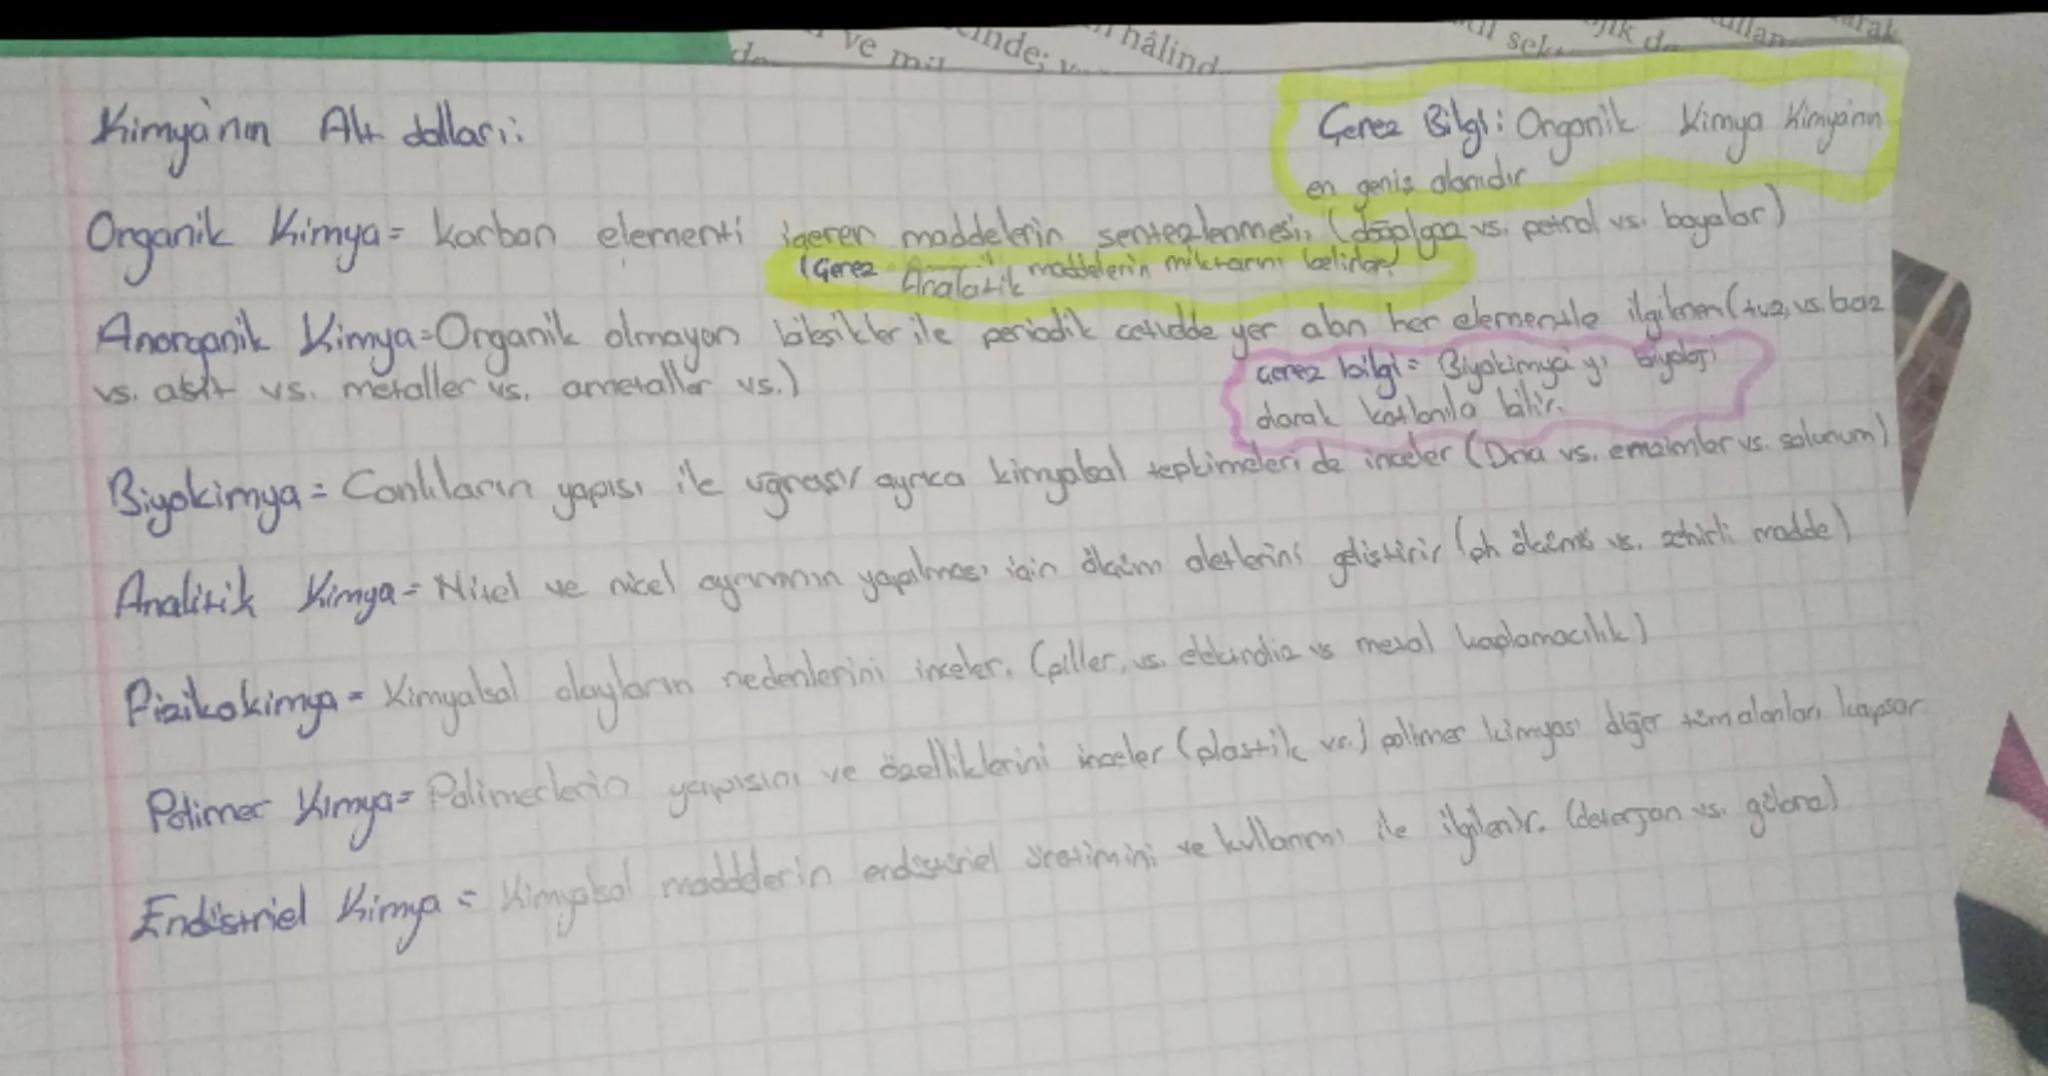 ve
cinde;
hâlind
Kimya'nın Alt dalları:
Çerez Bilgi: Organik Kimya Kimyanın
en geniş alanıdır
Organik Kimya= karbon elementi içeren maddelerin sentezlenmesi, (doğalgaz vs. petrol vs. boyalar)
(Çerez Analatik maddelerin miktarını belirler)
Anorganik Kimya=Organik olmayan bileşikler ile periodik cetvelde yer alan her elementle ilgilenen (tuz, vs. baz
vs. asit vs. metaller vs. ametaller vs.)
Çerez bilgi= Biyokimya'yı biyoloji
olarak katlanıla bilir.
Biyokimya= Canlıların yapısı ile uğraşır ayrıca kimyasal tepkimeleri de inceler (Dna vs. enzimler vs. solunum)
Analitik Kimya= Nitel ve nicel ayrımının yapılması için ölçüm aletlerini geliştirir (ph ölçümü vs. zehirli madde)
Fizikokimya= Kimyasal olayların nedenlerini inceler. (piller, vs. vs metal kaplamacılık)
Polimer Kimya= Polimerlerin yapısını ve özelliklerini inceler (plastik vs.) polimer kimyası diğer tüm alanları kapsar
Endüstriel Kimya= Kimyasal maddelerin endüstriel üretimini ve kullanımı ile ilgilenir. (deterjan vs. gübre)